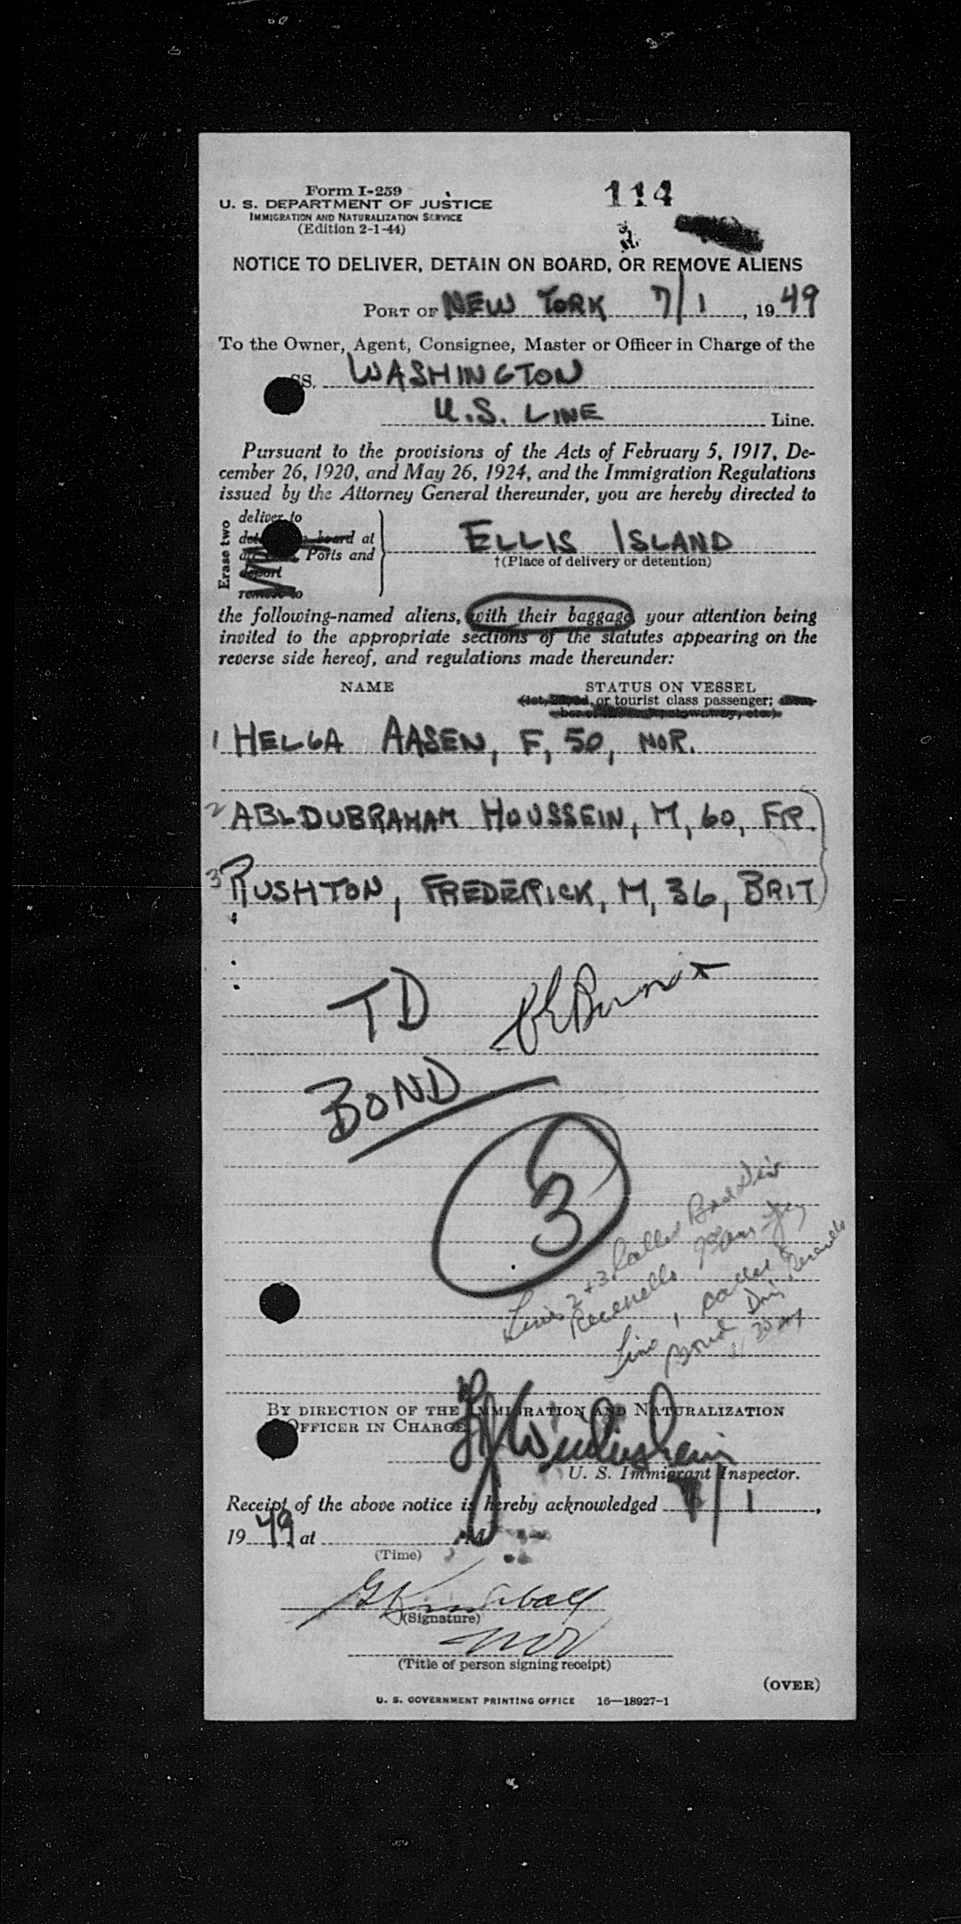 Form I-259
U. S. DEPARTMENT OF JUSTICE
IMMIGRATION AND NATURALIZATION SERVICE
(Edition 2-1-44)
114
NOTICE TO DELIVER, DETAIN ON BOARD, OR REMOVE ALIENS
PORT OF NEW YORK 7/1, 1949
To the Owner, Agent, Consignee, Master or Officer in Charge of the
SS. WASHINGTON
U.S. LINE Line.
Pursuant to the provisions of the Acts of February 5, 1917, De-
cember 26, 1920, and May 26, 1924, and the Immigration Regulations
issued by the Attorney General thereunder, you are hereby directed to
Erase two
deliver to
board at
Ports and
deport
remove to
ELLIS ISLAND
†(Place of delivery or detention)
the following-named aliens, with their baggage, your attention being
invited to the appropriate sections of the statutes appearing on the
reverse side hereof, and regulations made thereunder:
NAME STATUS ON VESSEL
or tourist class passenger;
1 HELGA AASEN, F, 50, NOR.
2 ABLDUBRAHAM HOUSSEIN, M, 60, FR.
3 RUSHTON, FREDERICK, M, 36, BRIT
TD
BOND
3
Lines 2 + 3
Line 1
Bond
BY DIRECTION OF THE IMMIGRATION AND NATURALIZATION
OFFICER IN CHARGE
U. S. Immigrant Inspector.
Receipt of the above notice is hereby acknowledged 7/1,
1949 at M
(Time)
(Signature)
(Title of person signing receipt)
(OVER)
U. S. GOVERNMENT PRINTING OFFICE 16—18927-1